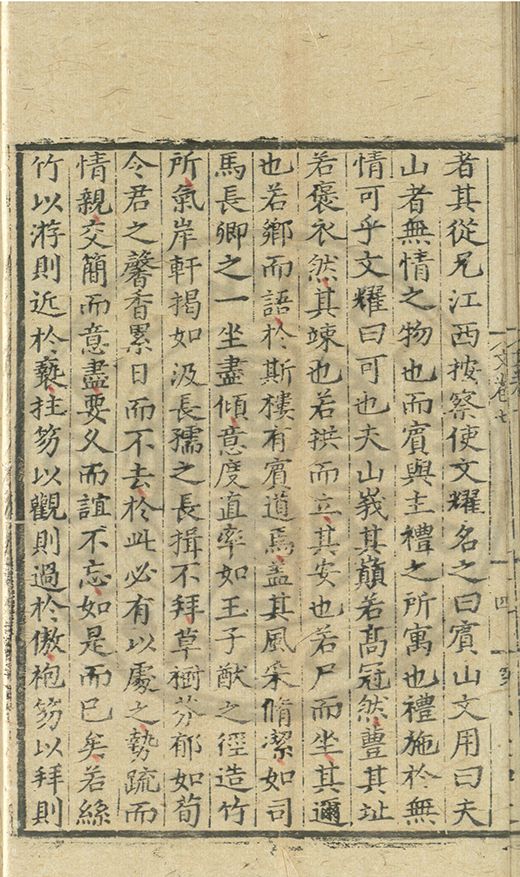 者其從兄江西按察使文耀名之曰賓山文用曰夫
山者無情之物也而賓與主禮之所寓也禮施於無
情可乎文耀曰可也夫山峩其巔若髙冠然豐其址
若褒衣然其竦也若拱而立其安也若尸而坐其邇
也若鄉而語於斯樓有賓道焉盖其風采脩潔如司
馬長卿之一坐盡傾意度直率如王子猷之徑造竹
所氣岸軒揭如汲長孺之長揖不拜草樹芬郁如荀
令君之馨香累日而不去於此必有以處之勢疏而
情親交簡而意盡要久而誼不忘如是而已矣若絲
竹以游則近於褻拄笏以觀則過於傲袍笏以拜則